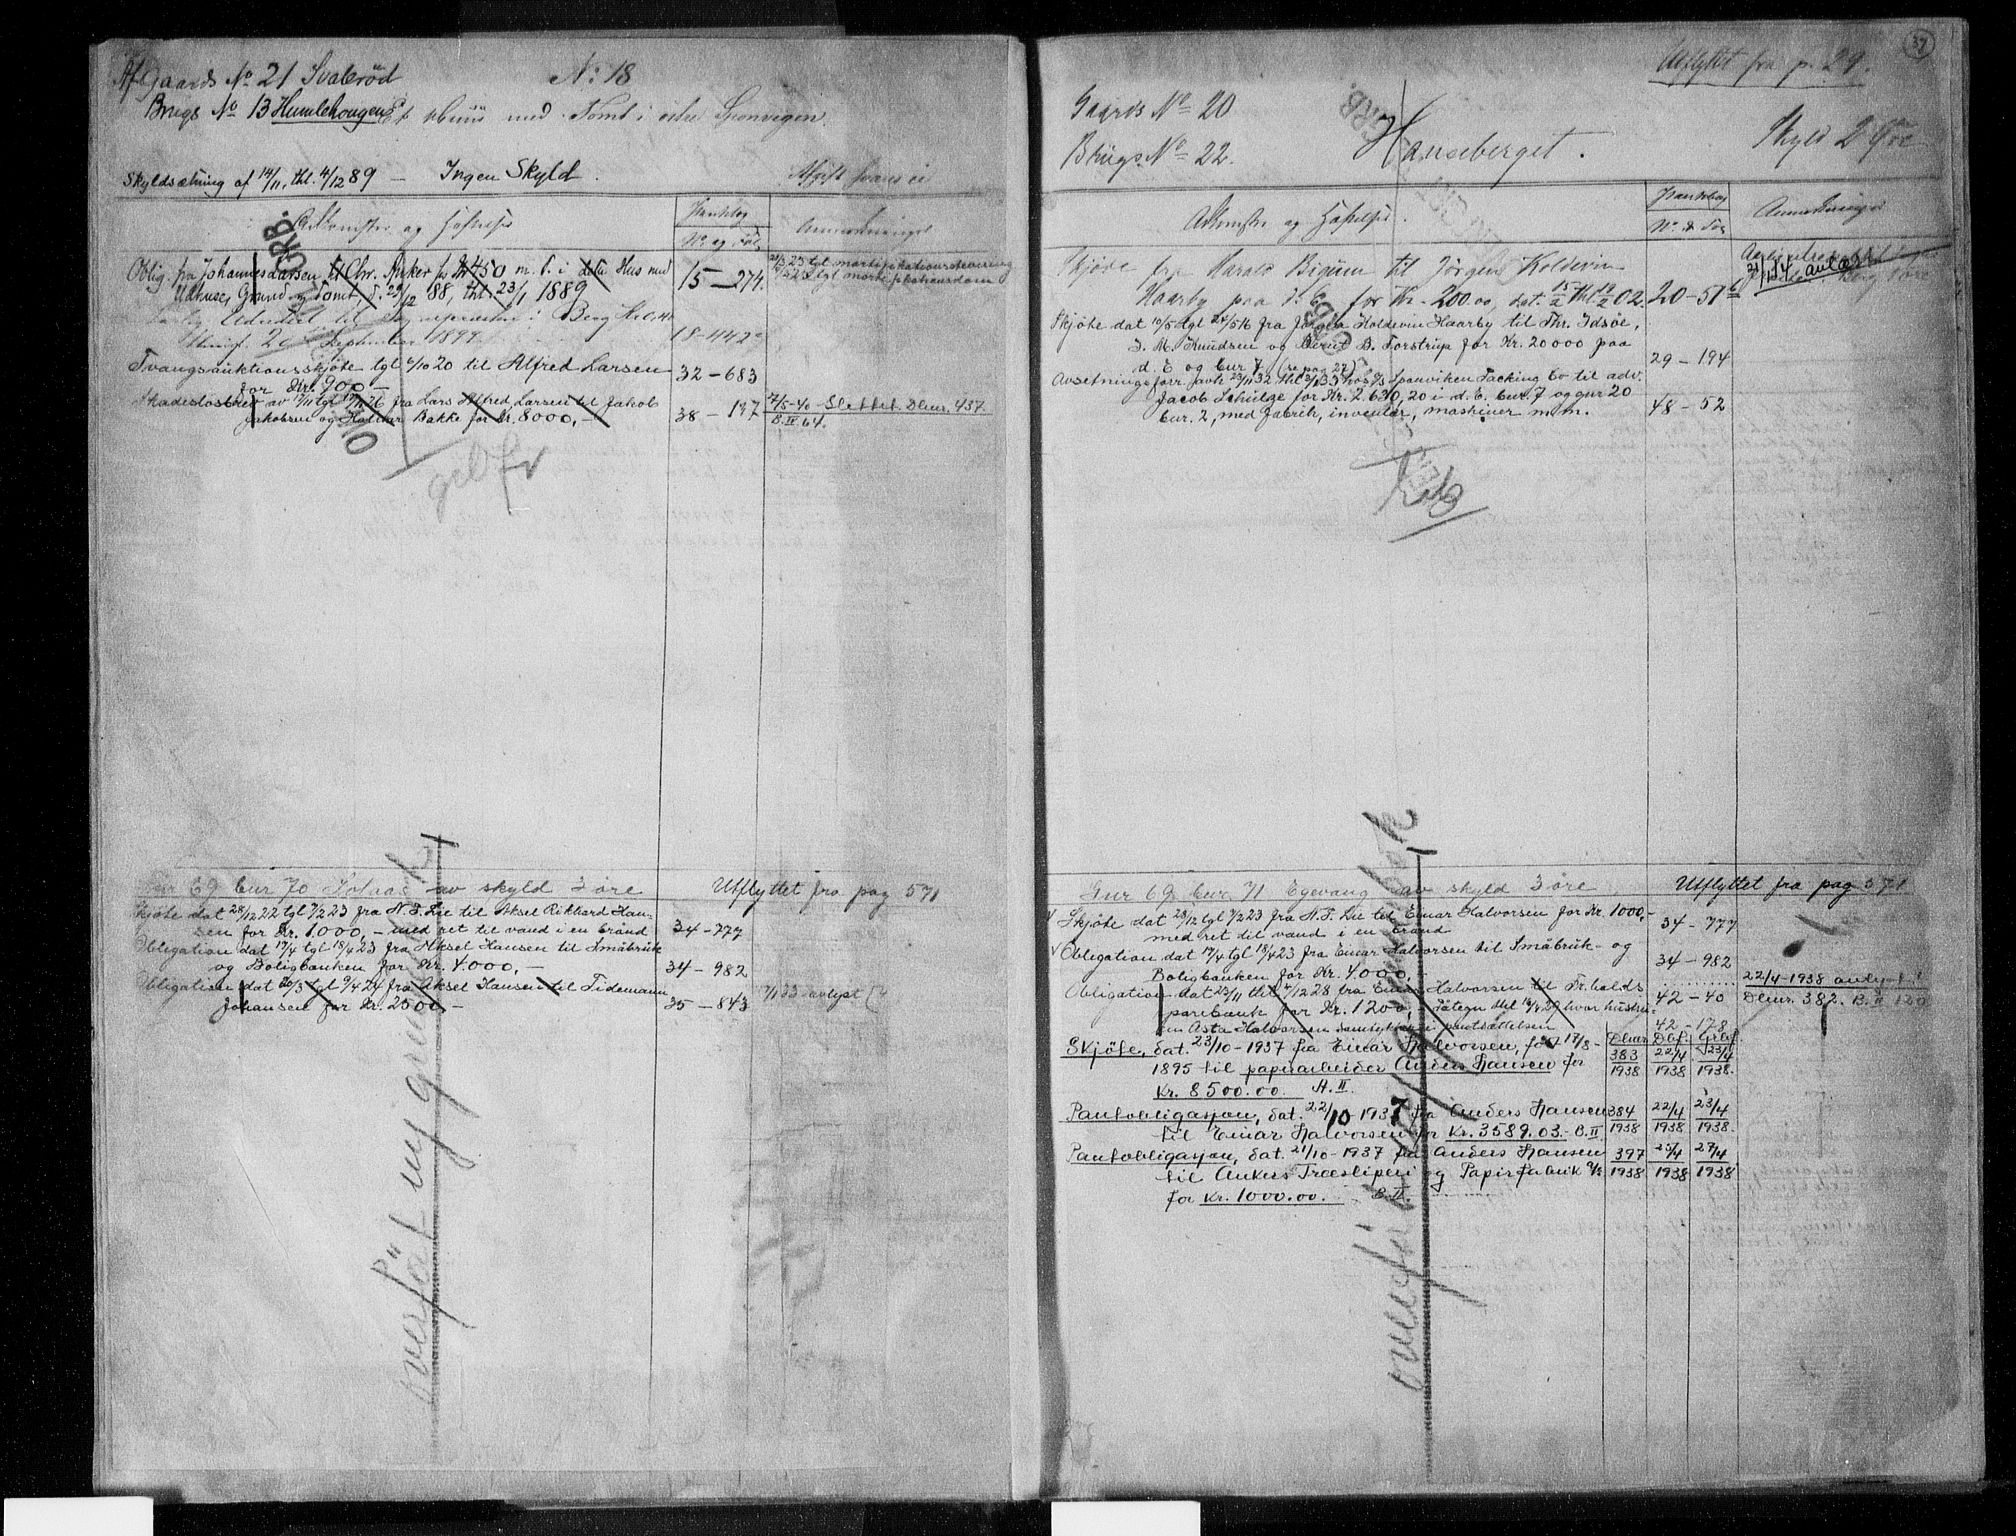 Af Gaards No 21 Svalerød No: 18
Brugs No 13 Humlehaugen Et Huus med Tomt i østre Sponvigen.
Skyldsætning af 14/11, thl. 4/12 89 – Ingen Skyld. Afgift svares ei
Adkomster og Hæftelser
Pantebog
No og Fol.
Anmerkninger
Oblig. fra Johannes Larsen til Chr. Anker for Kr 450 m. b. i dette Hus med 15 – 274.
Udhuse, Grund og Tomt, d. 29/12 88, thl. 23/1 1889
mortifikationsdom
September 1899 18 – 442
Tvangsauktionsskjøte tgl 6/10 20 til Alfred Larsen 32 – 683
for Kr. 900 –
Skadesløsbrev av 17/11 tgl 19/11 26 fra Lars Alfred Larsen til Jakob
Jakobsen og Halvor Bakke for Kr. 8000, – 38 – 197
7/5-40 Slettet. Dbnr. 437.
B. II 64.
OVERF. GRB.
Gnr 69 bnr 70 Solaas av skyld 3 øre Utflyttet fra pag 571
Skjøte dat 28/12 22 tgl 7/2 23 fra N. T. Lie til Aksel Rikhard Han-
sen for Kr. 1000, – med ret til vand i en brønd 34 – 777
Obligation dat 17/4 tgl 18/4 23 fra Aksel Hansen til Småbruk
og Boligbanken for Kr. 4.000, – 34 – 982
Obligation dat 20/3 tgl 9/4 24 fra Aksel Hansen til Tidemann
Johansen for Kr. 2500 – 35 – 843
33 avlyst
overført ny grunnbok
37
Utflyttet fra p. 29.
Gaards No 20
Brugs No 22.
Hanseberget.
Skyld 2 Øre
Adkomster og Hæftelser.
Pantebog
No & Fol
Anmerkninger
Skjøde fra Harald Bignum til Jørgen Koldevin
Haarby paa d. E. for Kr. 200.00, dat. 15/2 thl 19/2 02. 20 – 51
Skjøte dat 10/5 tgl 24/5 16 fra Jørgen Koldevin Haarby til Thr. Idsøe,
J. M. Knudsen og Bernt B. Torstrup for Kr. 20000 paa
d. E og bnr 7 (se pag 27) 29 – 194
Avsetningsforr. avh 23/11 32 thl 3/1 33 hos A/S Sponviken Packing Co til adv.
Jacob Schulze for Kr. 2.630,20 i d. e. bnr. 7 og gnr 20
bnr. 2, med fabrik, inventar, maskiner m. m. 48 – 52
avlæst
Gnr 69 bnr 71 Egevang av skyld 3 øre Utflyttet fra pag 571
Skjøte dat 28/12 tgl 7/2 23 fra N. T. Lie til Einar Halvorsen for Kr. 1000, –
med ret til vand i en brønd 34 – 777
Obligation dat 17/4 tgl 18/4 23 fra Einar Halvorsen til Småbruk- og
Boligbanken for Kr. 4.000, – 34 – 982
Obligation dat 23/11 thl 7/12 28 fra Einar Halvorsen til Fr.halds
sparebank for Kr. 1200, – Påtegn thl 19/4 29 hvor hustru- 42 – 40
en Asta Halvorsen samtykker i pantsettelsen 42 – 178
22/4-1938 avlyst
Dbnr. 382. B. II 120
Skjøte, dat. 23/10 – 1937 fra Einar Halvorsen, født 17/8 –
1895 til papirarbeider Anders Hansen for
Kr. 8500.00. A. II.
Dbnr. Dbf. Grbf.
383 22/4 23/4
1938 1938 1938.
Pantobligasjon, dat. 22/10 – 1937 fra Anders Hansen 384 22/4 23/4
til Einar Halvorsen for Kr. 3589.03. B. II 1938 1938 1938.
Pantobligasjon, dat. 21/10 – 1937 fra Anders Hansen 397 25/4 27/4
til Ankers Træsliperi og Papirfabrik A/S 1938 1938 1938
for Kr. 1000.00. B. II.
overført ny grunnbok